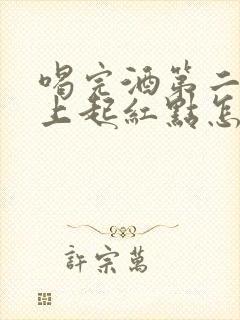 喝完酒第二
上起紅點怎
許宗萬